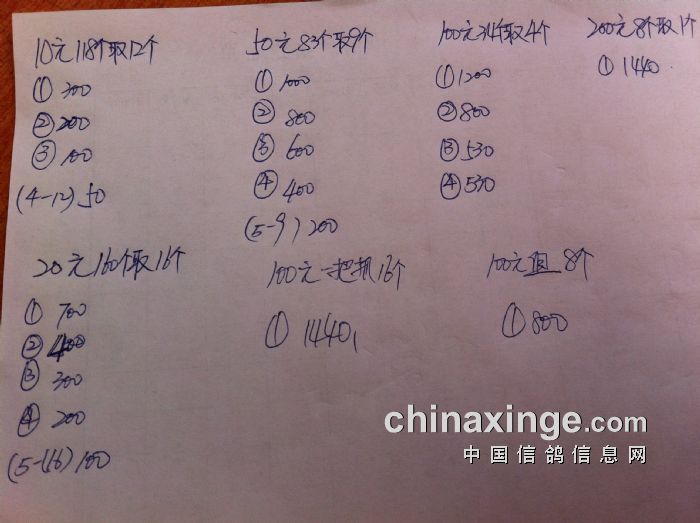 10元118个取12个
① 300
② 200
③ 100
(4-12) 50
50元83个取9个
① 1000
② 800
③ 600
④ 400
(5-9) 200
100元34个取4个
① 1200
② 800
③ 530
④ 530
200元8个取1个
① 1440
20元160个取16个
① 700
② 400
③ 300
④ 200
(5-16) 100
100元一把抓16个
① 1440
100元 8个
① 800
chinaxinge.com
中国信鸽信息网